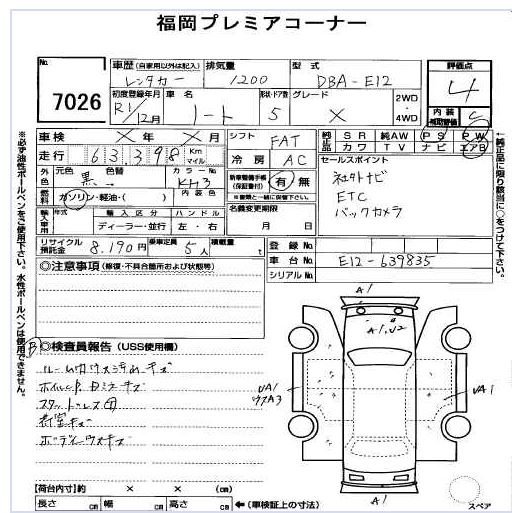 福岡プレミアコーナー
No. 7026
車歴 (自家用以外は記入) レンタカー
排気量 1200
型式 DBA-E12
評価点 4
初度登録年月 R1/12月
車名 ノート
形状・ドア数 5
グレード X
2WD・4WD
内装 補助評価 C
車検 × 年 × 月
シフト FAT
純正品 SR 純AW PS PW
カワ TV ナビ エアB
走行 63,398 Km マイル
冷房 AC
外色 元色 黒 色替 カラーNo. KH3
燃料 ガソリン・軽油・( ) 内装色
新車整備手帳(保証書付) 有/無
※書類と一緒に保管下さい。
セールスポイント
社外ナビ
ETC
バックカメラ
輸入車用 年式 輸入区分 ハンドル
ディーラー・並行 左・右
名義変更期限
月 日
リサイクル預託金 8,190円
乗車定員 5人
積載量 t
登録No.
車台No. E12-639835
シリアルNo.
◎注意事項 (修復・不具合箇所および状態等)
◎検査員報告 (USS使用欄)
ルーム内ウス汚れキズ
ボディーウスキズ
A1
A1,U2
UA1
UA1
A1
【荷台内寸】約 × × (cm)
長さ cm 幅 cm 高さ cm ←(車検証上の寸法)
スペア
※必ず油性ボールペンをご使用下さい。水性ボールペンは使用できません。
←純正品に限り該当に○をつけて下さい。